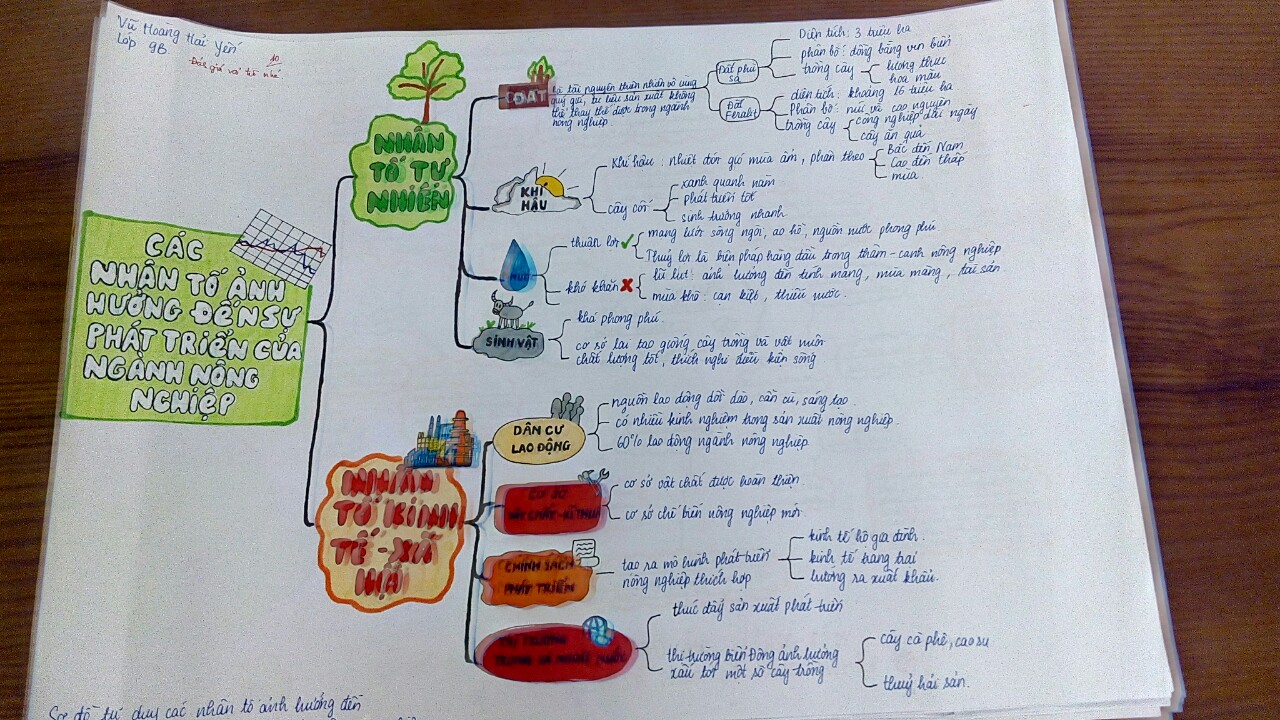 Vũ Hoàng Hải Yến
Lớp 9B
10
CÁC
NHÂN TỐ ẢNH
HƯỞNG ĐẾN SỰ
PHÁT TRIỂN CỦA
NGÀNH NÔNG
NGHIỆP
NHÂN
TỐ TỰ
NHIÊN
ĐẤT
là tài nguyên thiên nhiên vô cùng
quý giá, tư liệu sản xuất không
thể thay thế được trong ngành
nông nghiệp.
Đất phù
sa
Diện tích: 3 triệu ha
phân bố: đồng bằng ven biển
trồng cây
lương thực
hoa màu
Đất
Feralit
diện tích: khoảng 16 triệu ha
Phân bố: núi và cao nguyên
trồng cây
công nghiệp dài ngày
cây ăn quả
KHÍ
HẬU
Khí hậu: nhiệt đới gió mùa ẩm, phân theo
Bắc đến Nam
Cao đến thấp
mùa
cây cối
xanh quanh năm
phát triển tốt
sinh trưởng nhanh
thuận lợi
mạng lưới sông ngòi, ao hồ, nguồn nước phong phú
Thuỷ lợi là biện pháp hàng đầu trong thâm-canh nông nghiệp
khó khăn
lũ lụt: ảnh hưởng đến tính mạng, mùa màng, tài sản
mùa khô: cạn kiệt, thiếu nước.
SINH VẬT
khá phong phú.
cơ sở lai tạo giống cây trồng và vật nuôi
chất lượng tốt, thích nghi điều kiện sống
NHÂN
TỐ KINH
TẾ-XÃ
HỘI
DÂN CƯ
LAO ĐỘNG
nguồn lao động dồi dào, cần cù, sáng tạo.
có nhiều kinh nghiệm trong sản xuất nông nghiệp.
60% lao động ngành nông nghiệp
CƠ SỞ
VẬT CHẤT-KĨ THUẬT
cơ sở vật chất được hoàn thiện
cơ sở chế biến nông nghiệp mới
CHÍNH SÁCH
PHÁT TRIỂN
tạo ra mô hình phát triển
nông nghiệp thích hợp
kinh tế hộ gia đình.
kinh tế trang trại
hướng ra xuất khẩu.
THỊ TRƯỜNG
TRONG VÀ NGOÀI NƯỚC
thúc đẩy sản xuất phát triển
thị trường biến Động ảnh hưởng
xấu tới một số cây trồng
cây cà phê, cao su
thuỷ hải sản.
Sơ đồ tư duy các nhân tố ảnh hưởng đến